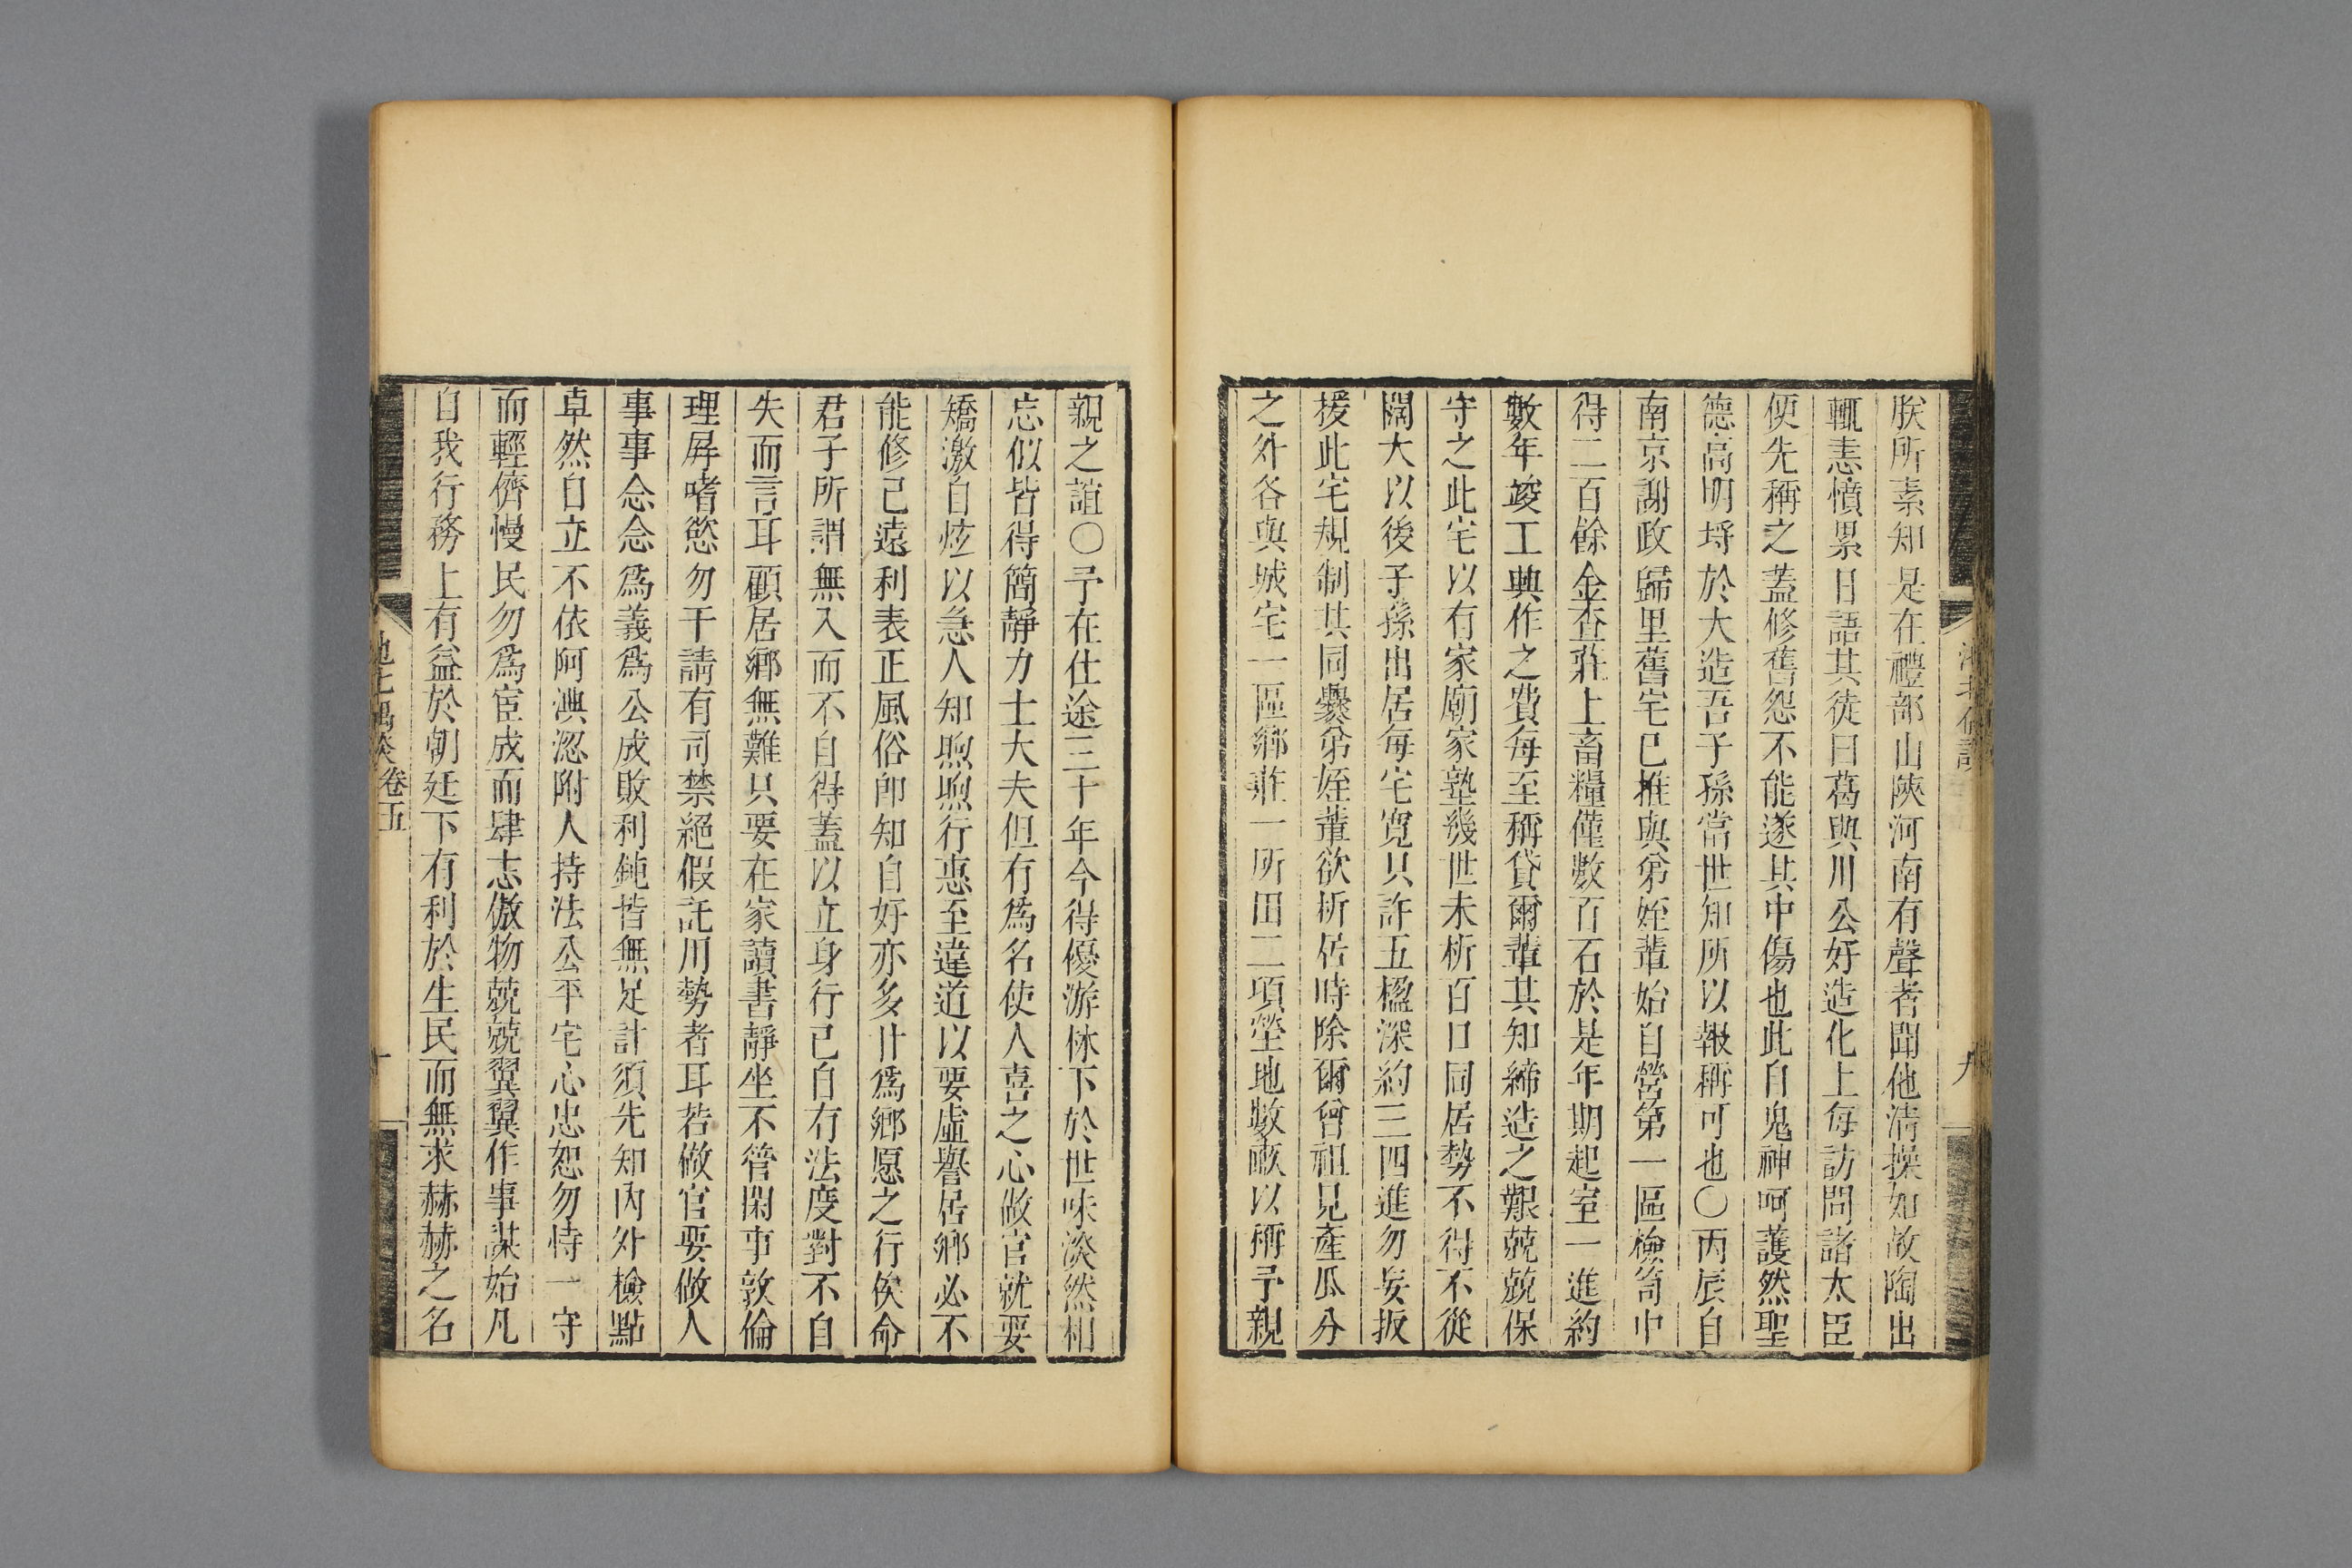 朕所素知是在禮部山陝河南有聲者聞他清操如故陶出
輒恚憤累日語其徒曰葛與川公好造化上每訪問諸大臣
便先稱之蓋修舊怨不能遂其中傷也此自鬼神呵護然聖
德高明埒於大造吾子孫當世知所以報稱可也〇丙辰自
南京謝政歸里舊宅已推與弟姪輩始自營第一區檢笥中
得二百餘金查莊上畜糧僅數百石於是年期起室一進約
數年竣工興作之費每至稱貸爾輩其知締造之艱兢兢保
守之此宅以有家廟家塾幾世未析百口同居勢不得不從
闊大以後子孫出居每宅寬只許五楹深約三四進勿妄扳
援此宅規制其同爨弟姪輩欲析居時除爾曾祖見產瓜分
之外各與城宅一區鄉莊一所田二項塋地數畝以稱予親
九
親之誼〇予在仕途三十年今得優游休下於世味淡然相
忘似皆得簡靜力士大夫但有為名使人喜之心做官就要
矯激自炫以急人知煦煦行惠至違道以要虛譽居鄉必不
能修己遠利表正風俗卽知自好亦多什為鄉愿之行俟命
君子所謂無入而不自得蓋以立身行已自有法度對不自
失而言耳顧居鄉無難只要在家讀書靜坐不管閑事敦倫
理屏嗜慾勿干請有司禁絕假託用勢者耳若做官要做人
事事念念爲義爲公成敗利鈍皆無足計須先知內外檢點
卓然自立不依阿淟涊附人持法公平宅心忠恕勿恃一守
而輕儕慢民勿爲宦成而肆志傲物兢兢翼翼作事謀始凡
自我行務上有益於朝廷下有利於生民而無求赫赫之名
池北偶談卷五